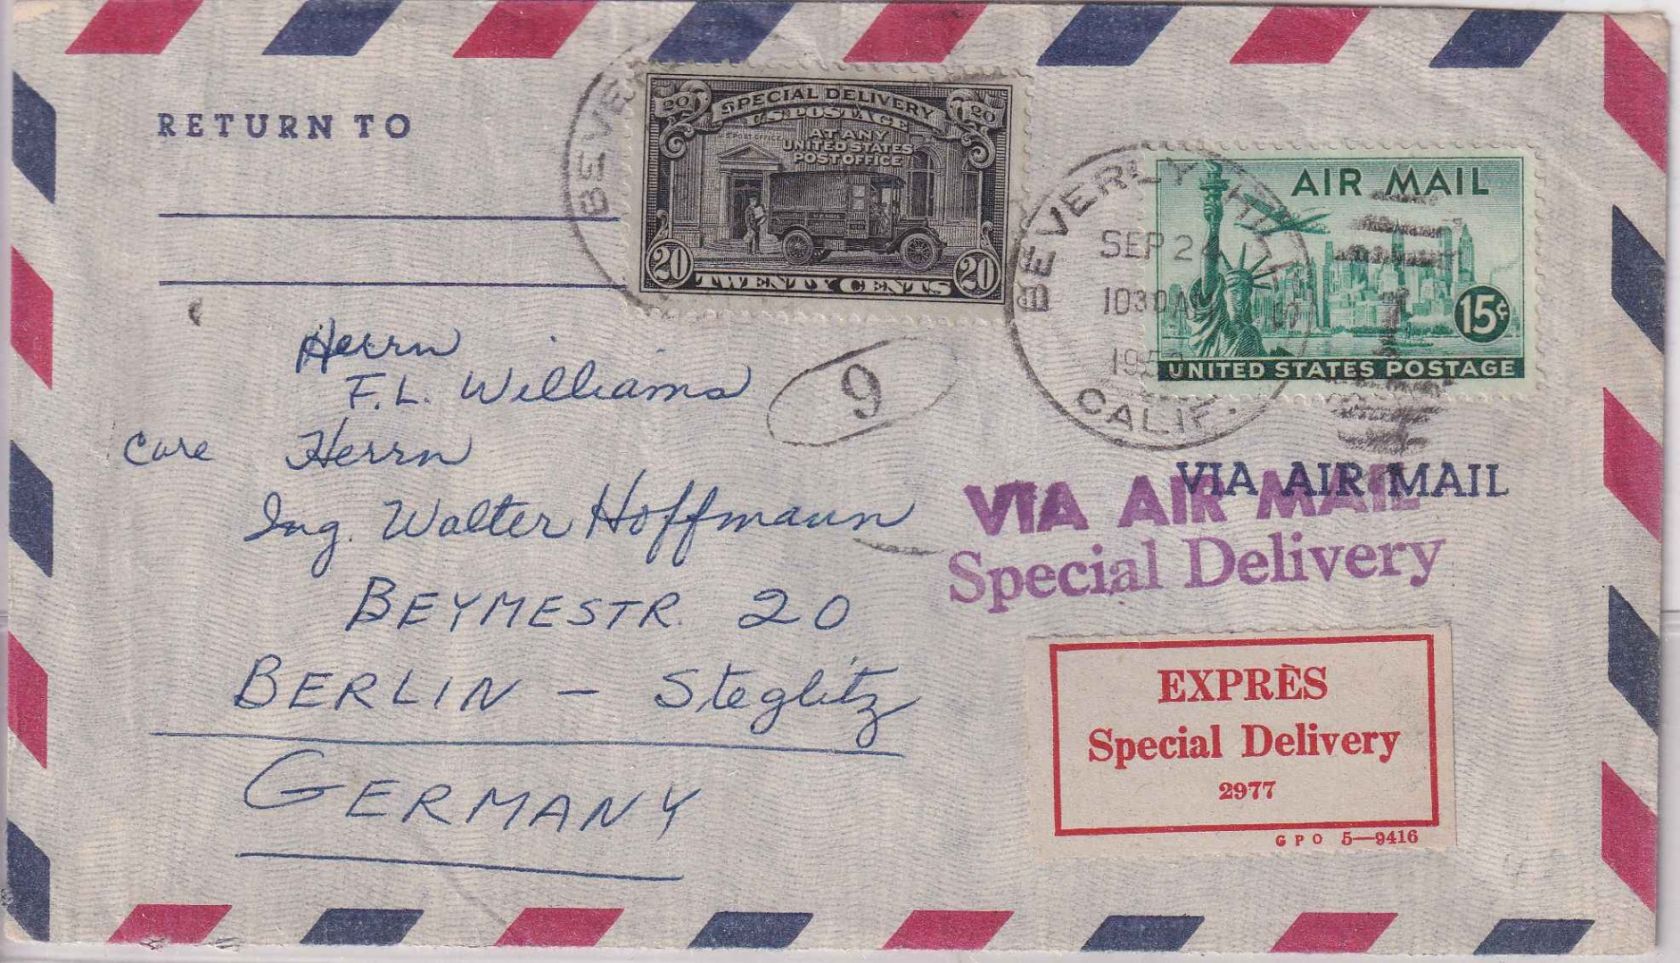 RETURN TO
20 SPECIAL DELIVERY 20
U.S. POSTAGE
POST OFFICE
AT ANY
UNITED STATES
POST OFFICE
20 TWENTY CENTS 20
BEVERLY HILLS
SEP 24
1030 AM
195
CALIF.
AIR MAIL
15¢
UNITED STATES POSTAGE
Herrn
F.L. Williams
9
Care Herrn
Ing. Walter Hoffmann
BEYMESTR. 20
BERLIN – Steglitz
GERMANY
VIA AIR MAIL
VIA AIR MAIL
Special Delivery
EXPRÈS
Special Delivery
2977
GPO 5—9416